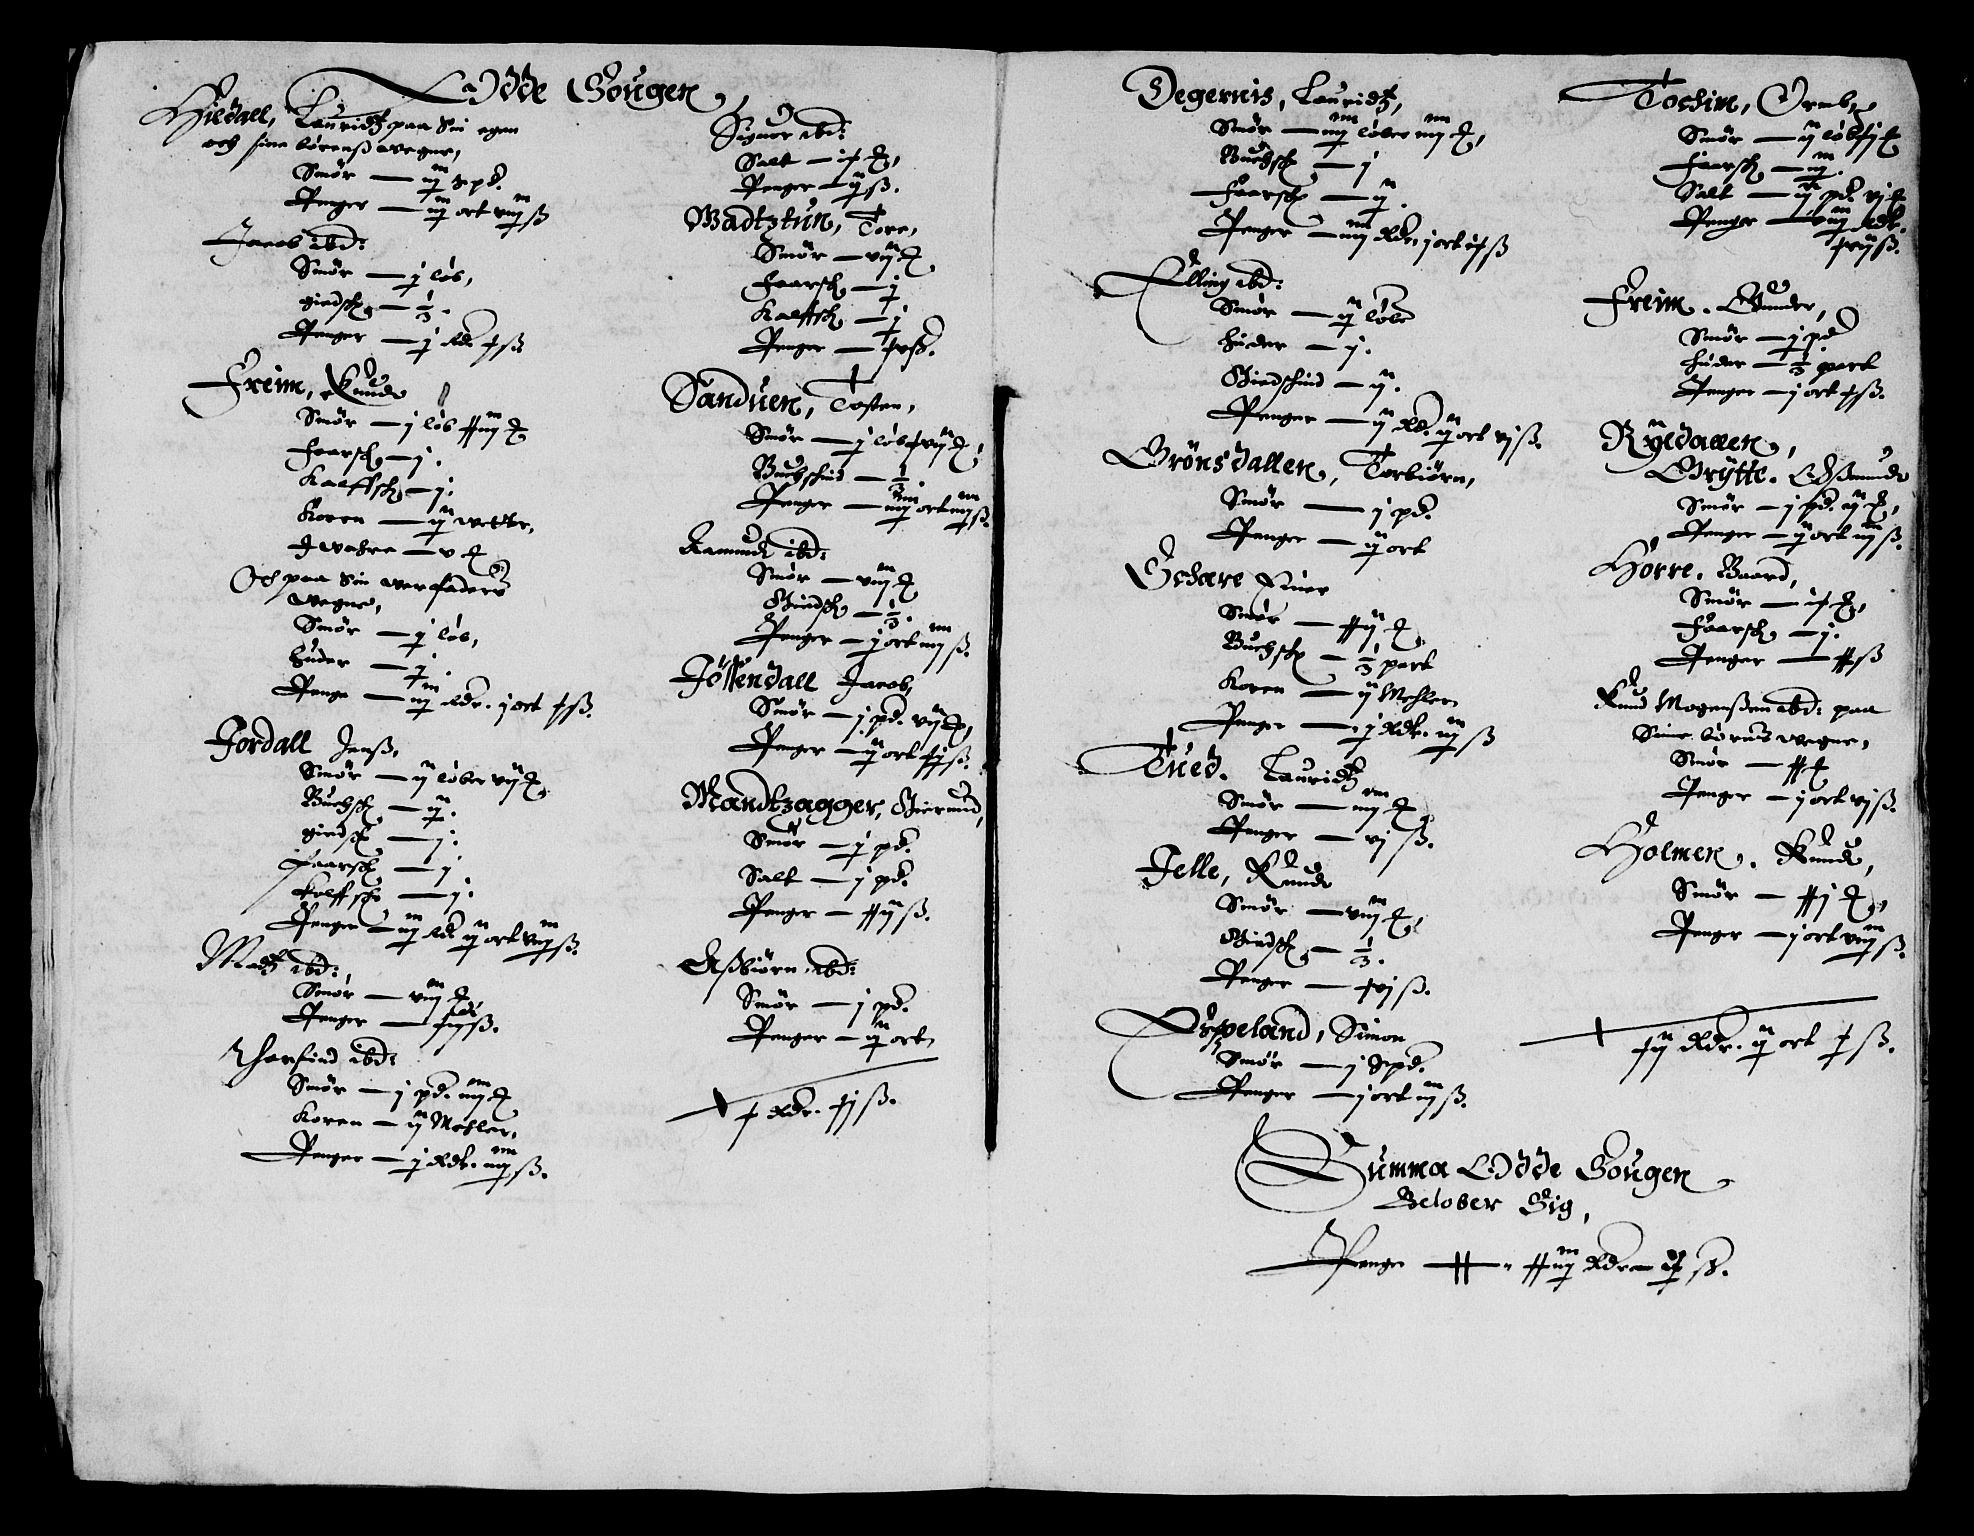 Odde Sougen,
Hildall, Lauridtz paa Sin egen
och sine børenss wegne,
Smør — iij Spd.
Penger — iij ort viij ß
Jacob ibd:
Smør — j løb,
giedsk — 1/3.
Penger — j Rdr. x ß.
Freim, Knud
Smør — j løb
Faarsk — j.
Kalffsk — j.
Koren — ij wetter,
Och paa Sin werfaders
wegne,
Smør — j løb,
Huder — j.
Penge — iij Rdr. j ort x ß.
Jordall Jenß,
Smør — ij løber vij
Buchsk — ij.
giedsk — j.
Faarsk — j
Kalffsk — j.
Penger — iij Rdr ij ort viij ß.
Madtz ibd:,
Smør — viij
Penger —
Thorfind ibd:
Smør — j pd. iiij
Koren — ij Mehler,
Penger — j Rdr. iiij ß.
Signor ibd:
Salt —
Penger — ij ß.
Wadtztun, Tore,
Smør — vij
Faarsk — j
Kalffsk — j
Penger — xv ß.
Sanduen, Tosten,
Smør — j løb xvij
Buchskind — 1/3.
Penger — iij ort iiij ß.
Aamund ibd:
Smør — viij
Giedsk — 1/3.
Penger — j ort iiij ß.
Jøssendall Jacob,
Smør — j pd. vij
Penger — ij ort
Mandtzagger,
Smør — j pd.
Salt — j pd.
Penger — xxij ß.
Aßbiørn ibd:
Smør — j pd.
Penger — ij ort
x Rdr. xj ß.
Degernis, Lauridtz,
Smør — iiij løber iiij
Buchsk — j
Faarsk — ij.
Penger — iiij Rdr. j ort
Elling ibd:
Smør — ij løbe
huder — j.
Giedskind — ij.
Penger — ij Rdr. ij ort vj ß.
Grønsdallen, Torbiørn,
Smør — j pd.
Penger — ij ort
Schare Einer
Smør — xxij
Buchsk — 1/3 part
Koren — ij Mehler
Penger — j Rdr. iij ß
Tued. Lauridtz
Smør — iiij
Penger — vj ß.
Jelle, Knud
Smør — viij
Giedsk — 1/3.
Penger — xvj ß.
Espeland, Simon
Smør — j Spd.
Penger — j ort iij ß.
Summa Odde Sougen
Beløber Sig,
Penger — xx. xxiij Rdr
Tochim, Ormb
Smør — ij løb
Faarsk — iij.
Salt — ij pd.
Penger —
Freim. Gunder,
Smør — j pd
huder — 1/3 part
Penger — j ort x ß.
Ryldallen,
Grytte. Oßmund
Smør — j pd. ij
Penger — ij ort iij ß.
Horre. Baard,
Smør —
Faarsk — j.
Penger — xx ß
Knud Mogenßen ibd: paa
Sine børns wegne,
Smør — xx
Penger — j ort vj ß.
Holmen. Knud,
Smør — xxj
Penger — j ort viij ß.
xij Rdr. ij ort x ß.